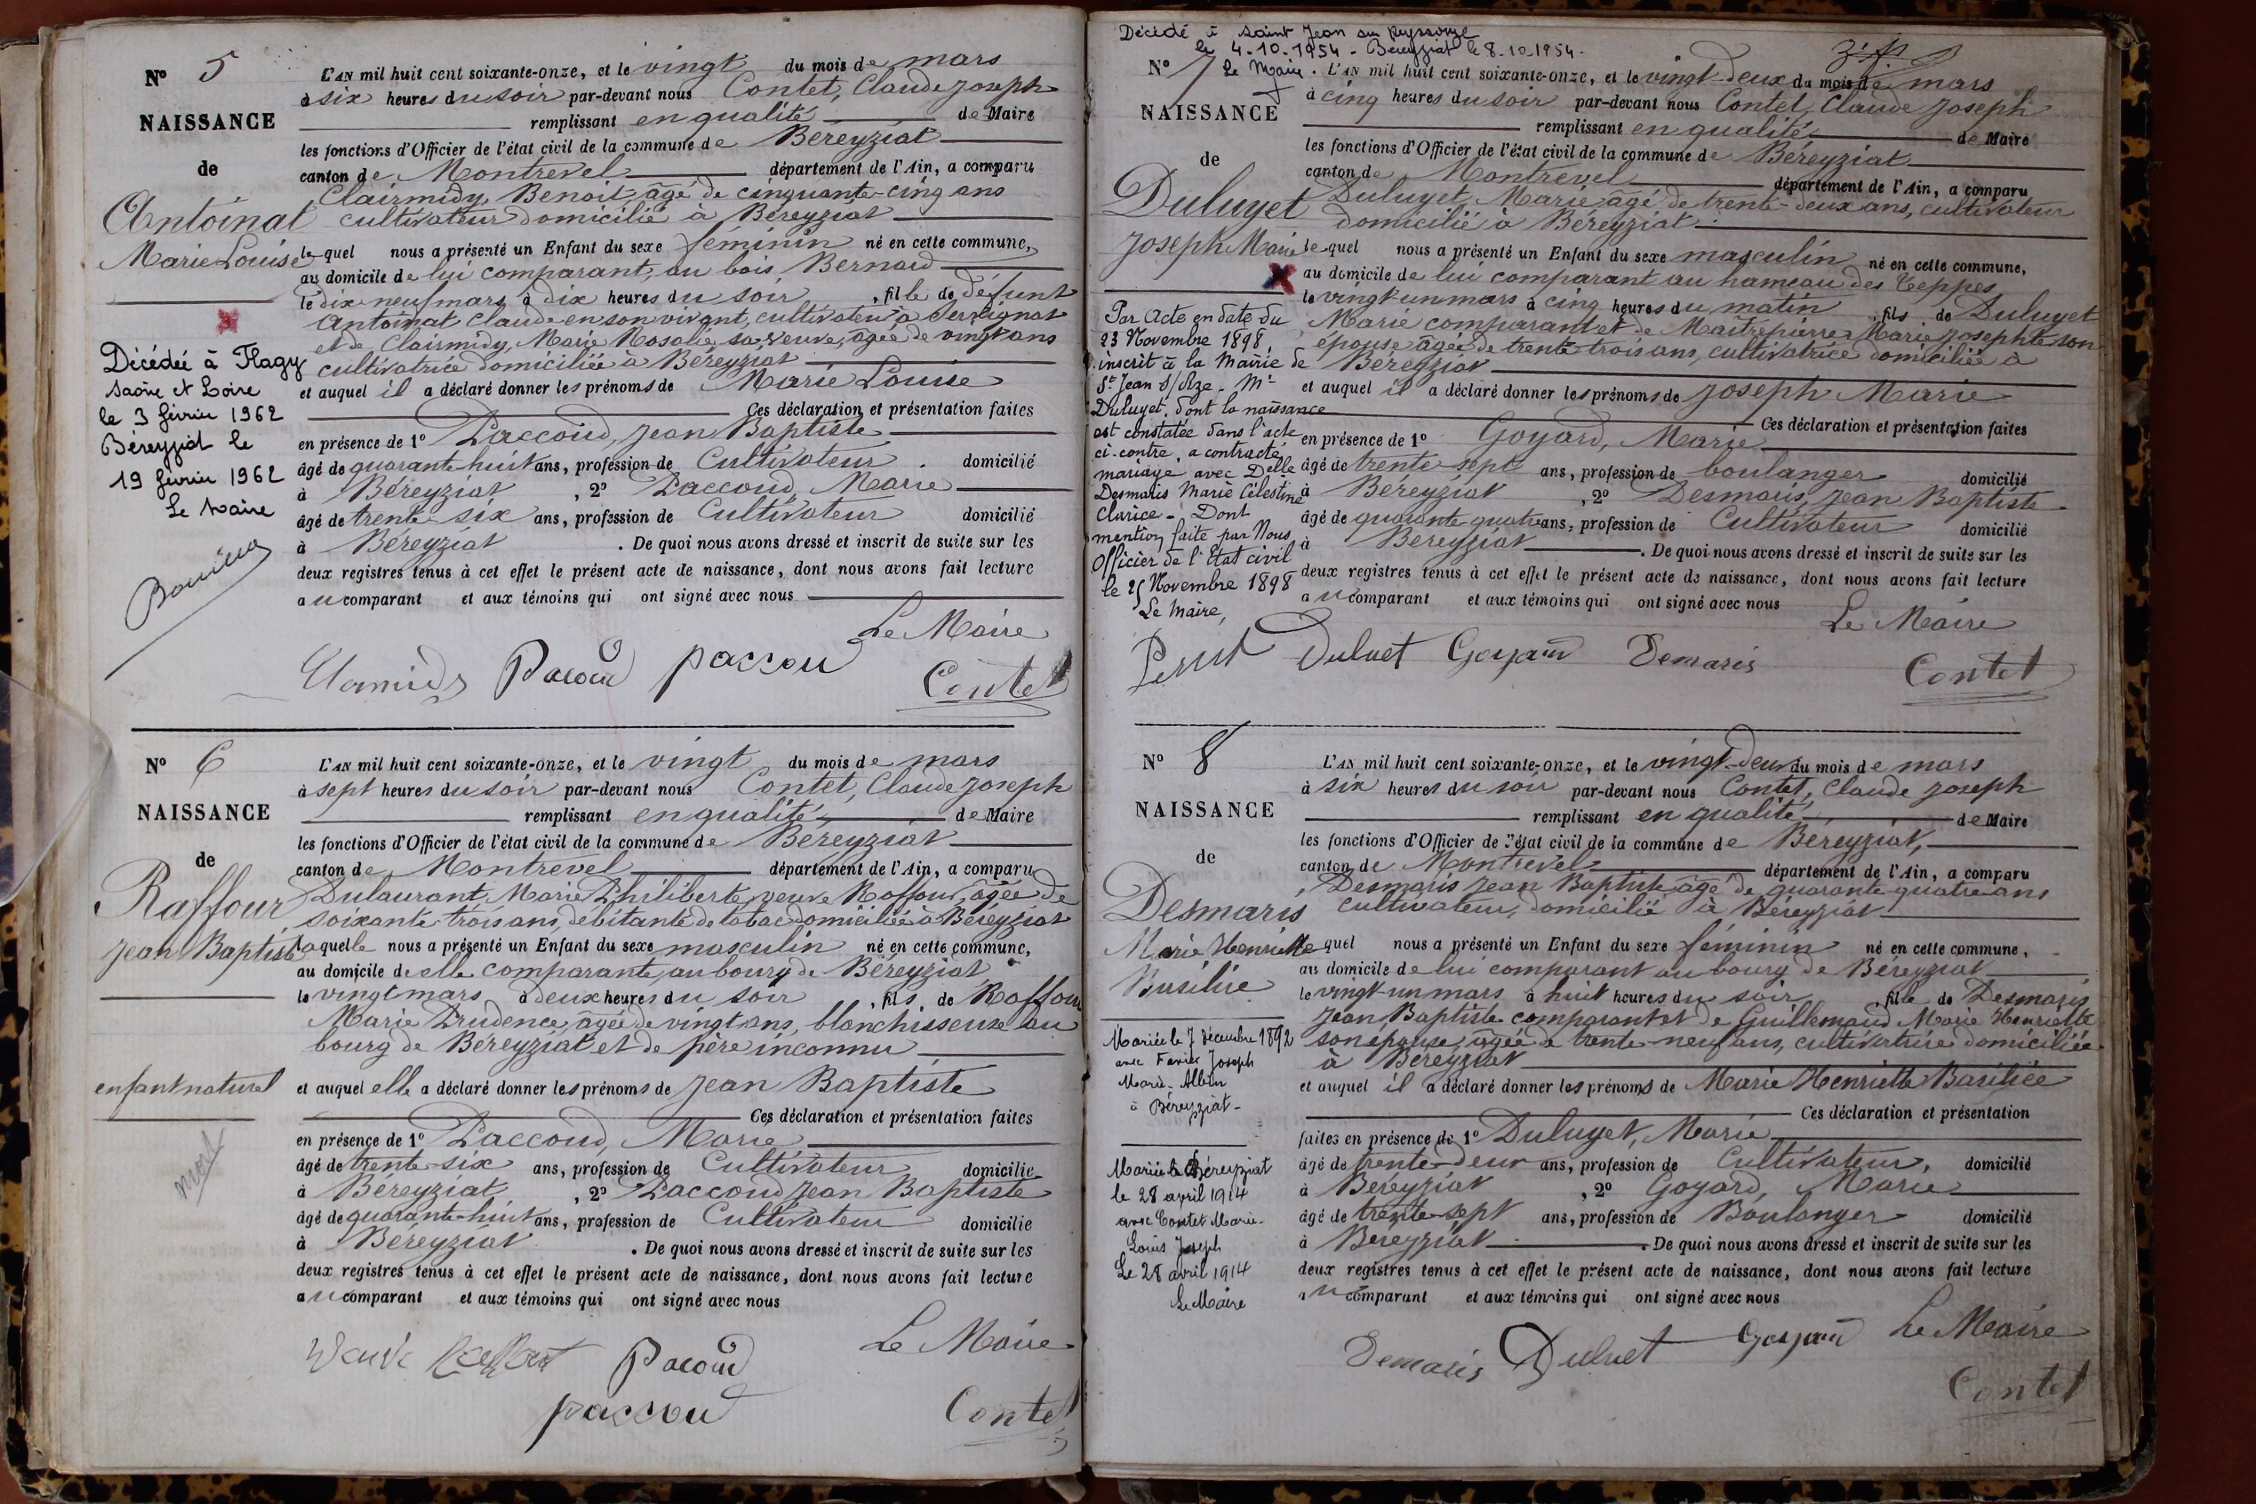 N° 5
NAISSANCE
de
Antoinat
Marie Louise
Décédée à Flagy
Saône et Loire
le 3 février 1962
Béreyziat le
19 février 1962
Le Maire
L'AN mil huit cent soixante-onze, et le vingt du mois de mars
à six heures du soir par-devant nous Contet, Claude Joseph
remplissant en qualité de Maire
les fonctions d'Officier de l'état civil de la commune de Béreyziat
canton de Montrevel département de l'Ain, a comparu
Clairmidy, Benoit, âgé de cinquante-cinq ans
cultivateur domicilié à Béreyziat
lequel nous a présenté un Enfant du sexe féminin né en cette commune,
au domicile de lui comparant, au bois Bernard
le dix-neuf mars à dix heures du soir, fille de défunt
Antoinat Claude en son vivant, cultivateur à
et de Clairmidy, Marie Rosalie, sa veuve, âgée de vingt ans
cultivatrice domiciliée à Béreyziat
et auquel il a déclaré donner les prénoms de Marie Louise
Ces déclaration et présentation faites
en présence de 1° Paccoud, Jean Baptiste
âgé de quarante-huit ans, profession de Cultivateur. domicilié
à Béreyziat, 2° Paccoud, Marie
âgé de trente-six ans, profession de Cultivateur domicilié
à Béreyziat. De quoi nous avons dressé et inscrit de suite sur les
deux registres tenus à cet effet le présent acte de naissance, dont nous avons fait lecture
au comparant et aux témoins qui ont signé avec nous
Le Maire
Pacoud paccou Contet
N° 6
NAISSANCE
de
Raffour
Jean Baptiste
enfant naturel
mort
L'AN mil huit cent soixante-onze, et le vingt du mois de mars
à sept heures du soir par-devant nous Contet, Claude Joseph
remplissant en qualité de Maire
les fonctions d'Officier de l'état civil de la commune de Béreyziat
canton de Montrevel département de l'Ain, a comparu
Dulaurant, Marie Philiberte, veuve Raffour, âgée de
soixante-trois ans, débitante de tabac domiciliée à Béreyziat
laquelle nous a présenté un Enfant du sexe masculin né en cette commune,
au domicile de elle comparante, au bourg de Béreyziat
le vingt mars à deux heures du soir, fils de Raffour
Marie Prudence, âgée de vingt ans, blanchisseuse au
bourg de Béreyziat et de père inconnu
et auquel elle a déclaré donner les prénoms de Jean Baptiste
Ces déclaration et présentation faites
en présence de 1° Paccoud, Marie
âgé de trente-six ans, profession de Cultivateur domicilié
à Béreyziat, 2° Paccoud Jean Baptiste
âgé de quarante-huit ans, profession de Cultivateur domicilié
à Béreyziat. De quoi nous avons dressé et inscrit de suite sur les
deux registres tenus à cet effet le présent acte de naissance, dont nous avons fait lecture
au comparant et aux témoins qui ont signé avec nous
Le Maire
Veuve Raffour Pacoud
paccou Contet
Décédé à Saint Jean sur Reyssouze
le 4.10.1954 - Béreyziat le 8.10.1954.
Le Maire.
N° 7
NAISSANCE
de
Duluyet
Joseph Marie
Par Acte en date du
23 Novembre 1898,
inscrit à la Mairie de
St Jean s/ Rze - Mr
Duluyet, dont la naissance
est constatée dans l'acte
ci-contre, a contracté
mariage avec Delle
Desmaris Marie Célestine
Clarice -. Dont
mention faite par Nous
Officier de l'Etat civil
le 25 Novembre 1898
Le Maire,
L'AN mil huit cent soixante-onze, et le vingt-deux du mois de mars
à cinq heures du soir par-devant nous Contet, Claude Joseph
remplissant en qualité de Maire
les fonctions d'Officier de l'état civil de la commune de Béreyziat
canton de Montrevel département de l'Ain, a comparu
Duluyet, Marie âgé de trente-deux ans, cultivateur
domicilié à Béreyziat
lequel nous a présenté un Enfant du sexe masculin né en cette commune,
au domicile de lui comparant au hameau des Ceppes
le vingt-un mars à cinq heures du matin, fils de Duluyet
Marie comparant et de Maîtrepierre Marie Josephte son
épouse âgée de trente-trois ans, cultivatrice domiciliée à
Béreyziat
et auquel il a déclaré donner les prénoms de Joseph Marie
Ces déclaration et présentation faites
en présence de 1° Goyard, Marie
âgé de trente-sept ans, profession de boulanger domicilié
à Béreyziat, 2° Desmaris, Jean Baptiste
âgé de quarante-quatre ans, profession de Cultivateur domicilié
à Béreyziat. De quoi nous avons dressé et inscrit de suite sur les
deux registres tenus à cet effet le présent acte de naissance, dont nous avons fait lecture
au comparant et aux témoins qui ont signé avec nous
Le Maire
Duluet Goyard Demaris Contet
N° 8
NAISSANCE
de
Desmaris
Marie Henriette
Basilice
Mariée le 7 décembre 1892
avec Joseph
Marie-Albin
à Béreyziat-
Mariée à Béreyziat
le 28 avril 1914
avec Contet Marie-
Louis Joseph
Le 28 avril 1914
Le Maire
L'AN mil huit cent soixante-onze, et le vingt-deux du mois de mars
à six heures du soir par-devant nous Contet, Claude Joseph
remplissant en qualité de Maire
les fonctions d'Officier de l'état civil de la commune de Béreyziat,
canton de Montrevel département de l'Ain, a comparu
Desmaris Jean Baptiste âgé de quarante-quatre ans
cultivateur, domicilié à Béreyziat
quel nous a présenté un Enfant du sexe féminin né en cette commune,
au domicile de lui comparant au bourg de Béreyziat
le vingt-un mars à huit heures du soir, fille de Desmaris
Jean Baptiste comparant et de Guillemaud Marie Henriette
son épouse, âgée de trente-neuf ans, cultivatrice domiciliée
à Béreyziat
et auquel il a déclaré donner les prénoms de Marie Henriette Basilice
Ces déclaration et présentation
faites en présence de 1° Duluyet, Marie
âgé de trente-deux ans, profession de Cultivateur, domicilié
à Béreyziat, 2° Goyard, Marie
âgé de trente-sept ans, profession de Boulanger domicilié
à Béreyziat. De quoi nous avons dressé et inscrit de suite sur les
deux registres tenus à cet effet le présent acte de naissance, dont nous avons fait lecture
au comparant et aux témoins qui ont signé avec nous
Demaris Duluet Goyard Le Maire
Contet